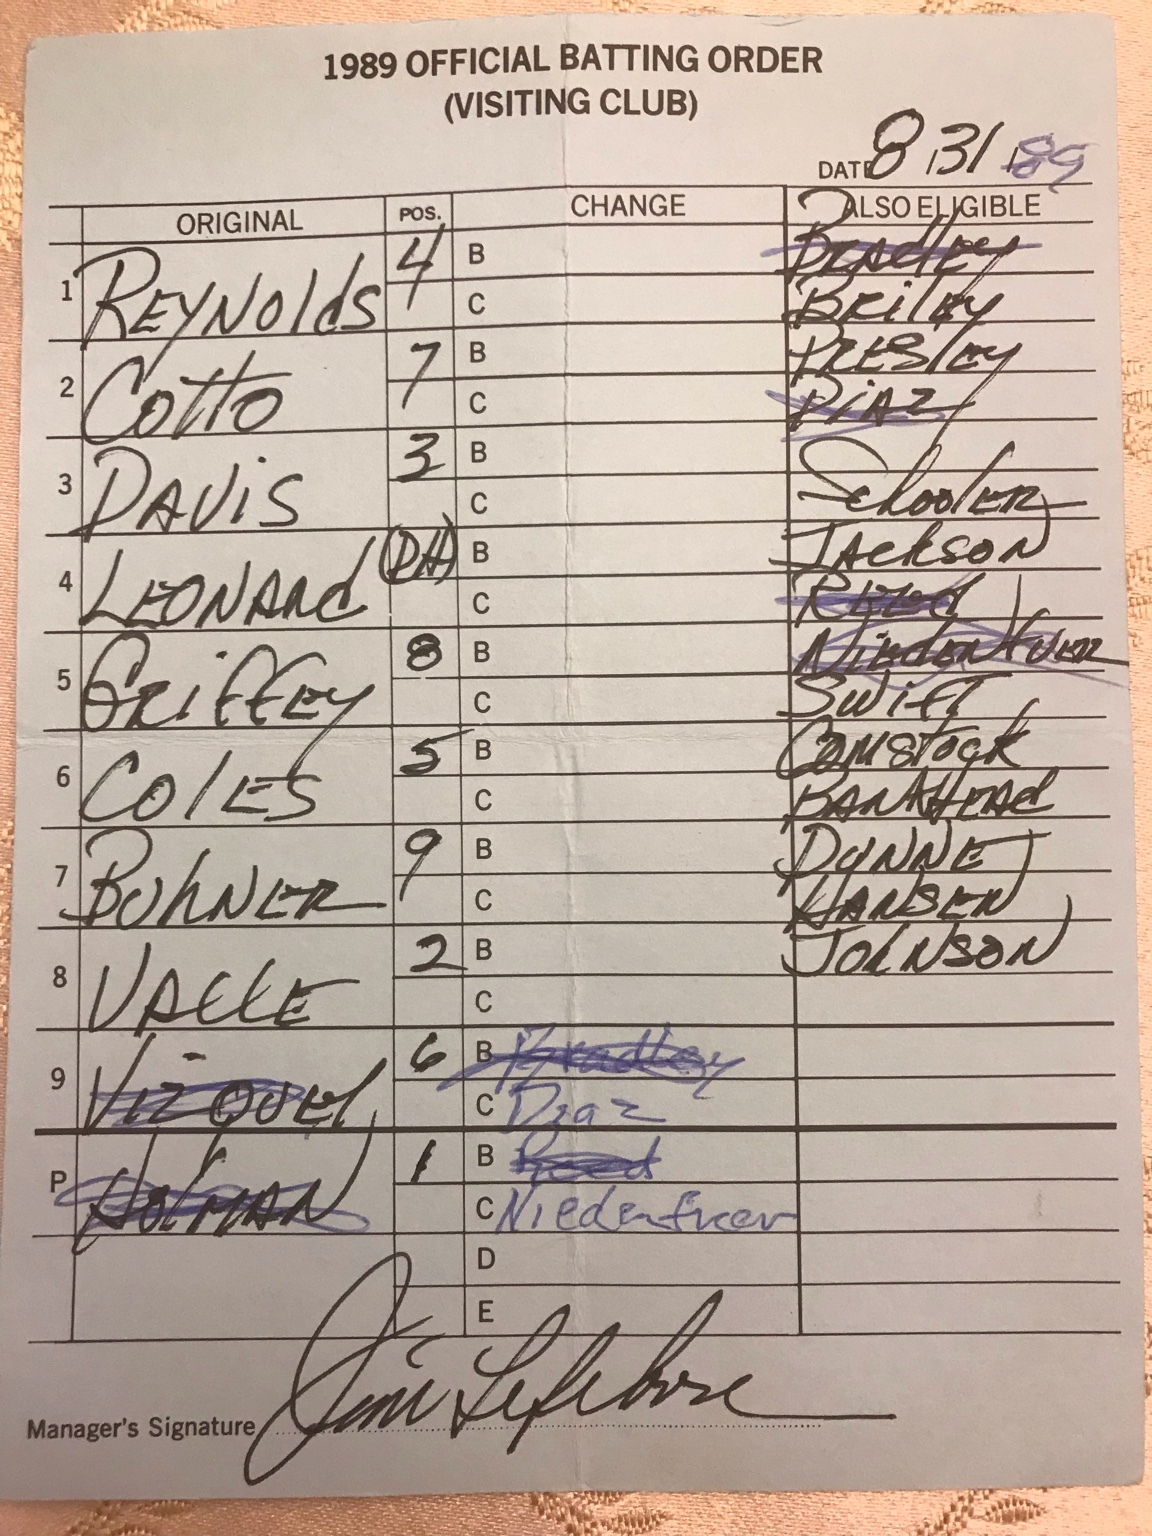 1989 OFFICIAL BATTING ORDER
(VISITING CLUB)
DATE 8/31/89
ORIGINAL POS. CHANGE ALSO ELIGIBLE
1 REYNOLDS 4 B Bradley
C BRILEY
2 Cotto 7 B PRESLEY
C DiAZ
3 DAVIS 3 B
C SchoolER
4 LEONARd (DH) B JACKSON
C REEd
5 GRiFFEY 8 B NiEdENfUER
C SWiFT
6 COlES 5 B COMStOCK
C BANKHEAd
7 BUhNER 9 B DUNNE
C HANSEN
8 VALLE 2 B JOhNSON
C
9 ViZQUEL 6 B Bradley
C Diaz
P HOlMAN 1 B Reed
C Niedenfuer
D
E
Manager's Signature Jim Lefebvre